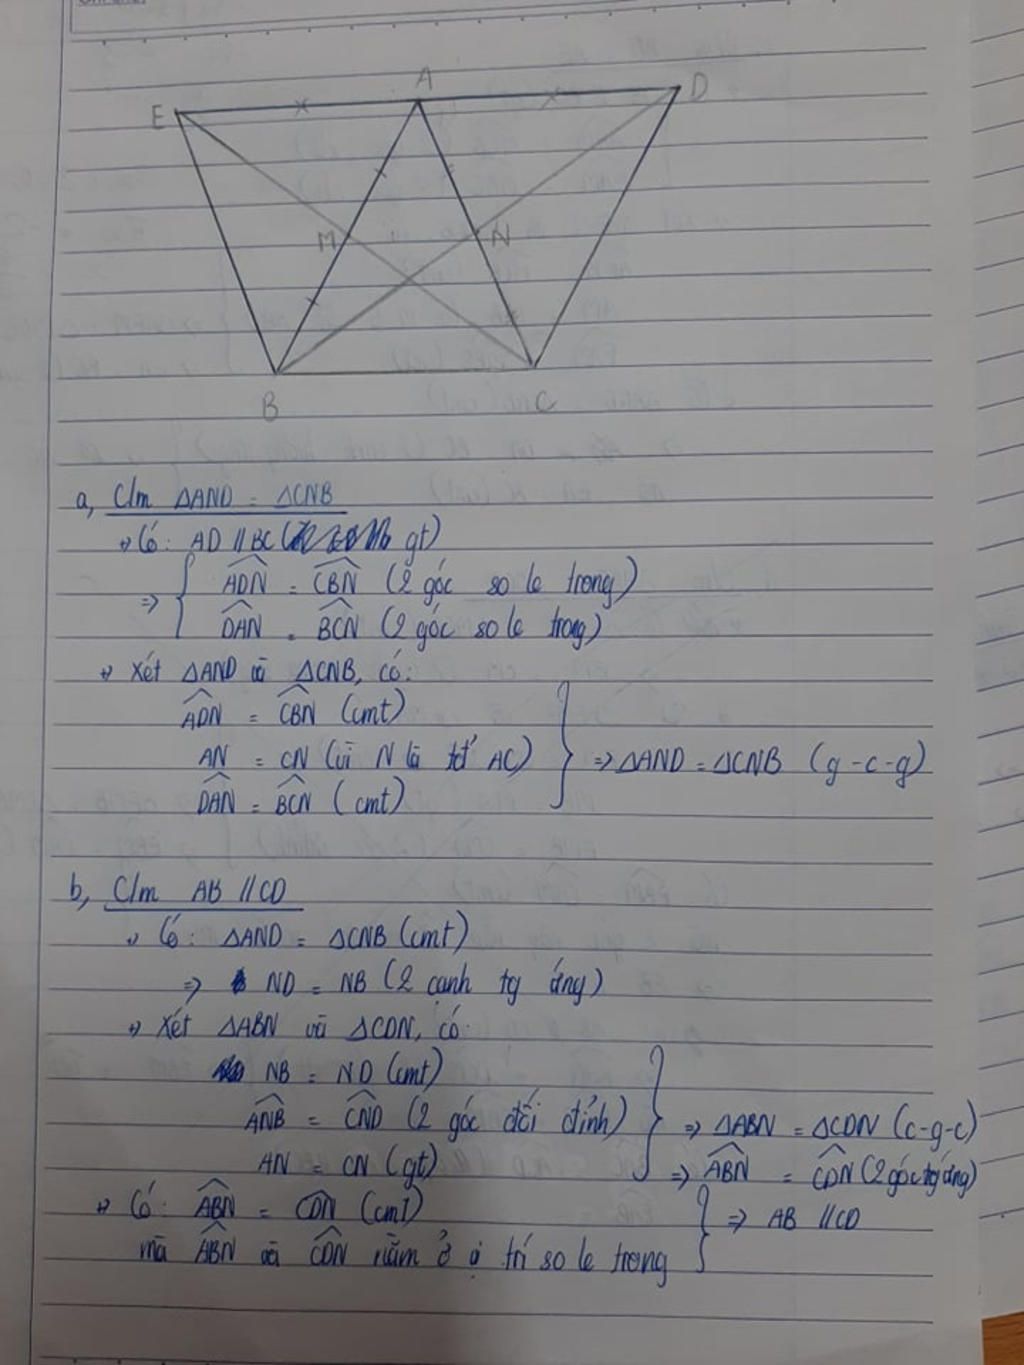 E A D
M N
B C
a, C/m ΔAND = ΔCNB
Có: AD // BC ( gt)
=> { ADN = CBN (2 góc so le trong)
DAN = BCN (2 góc so le trong)
Xét ΔAND và ΔCNB, có:
ADN = CBN (cmt)
AN = CN (vì N là tđ AC) } => ΔAND = ΔCNB (g-c-g)
DAN = BCN (cmt)
b, C/m AB // CD
Có: ΔAND = ΔCNB (cmt)
=> ND = NB (2 cạnh tg ứng)
Xét ΔABN và ΔCDN, có:
NB = ND (cmt)
ANB = CND (2 góc đối đỉnh) } => ΔABN = ΔCDN (c-g-c)
AN = CN (gt) => ABN = CDN (2 góc tg ứng)
Có: ABN = CDN (cmt) } => AB // CD
mà ABN và CDN nằm ở vị trí so le trong